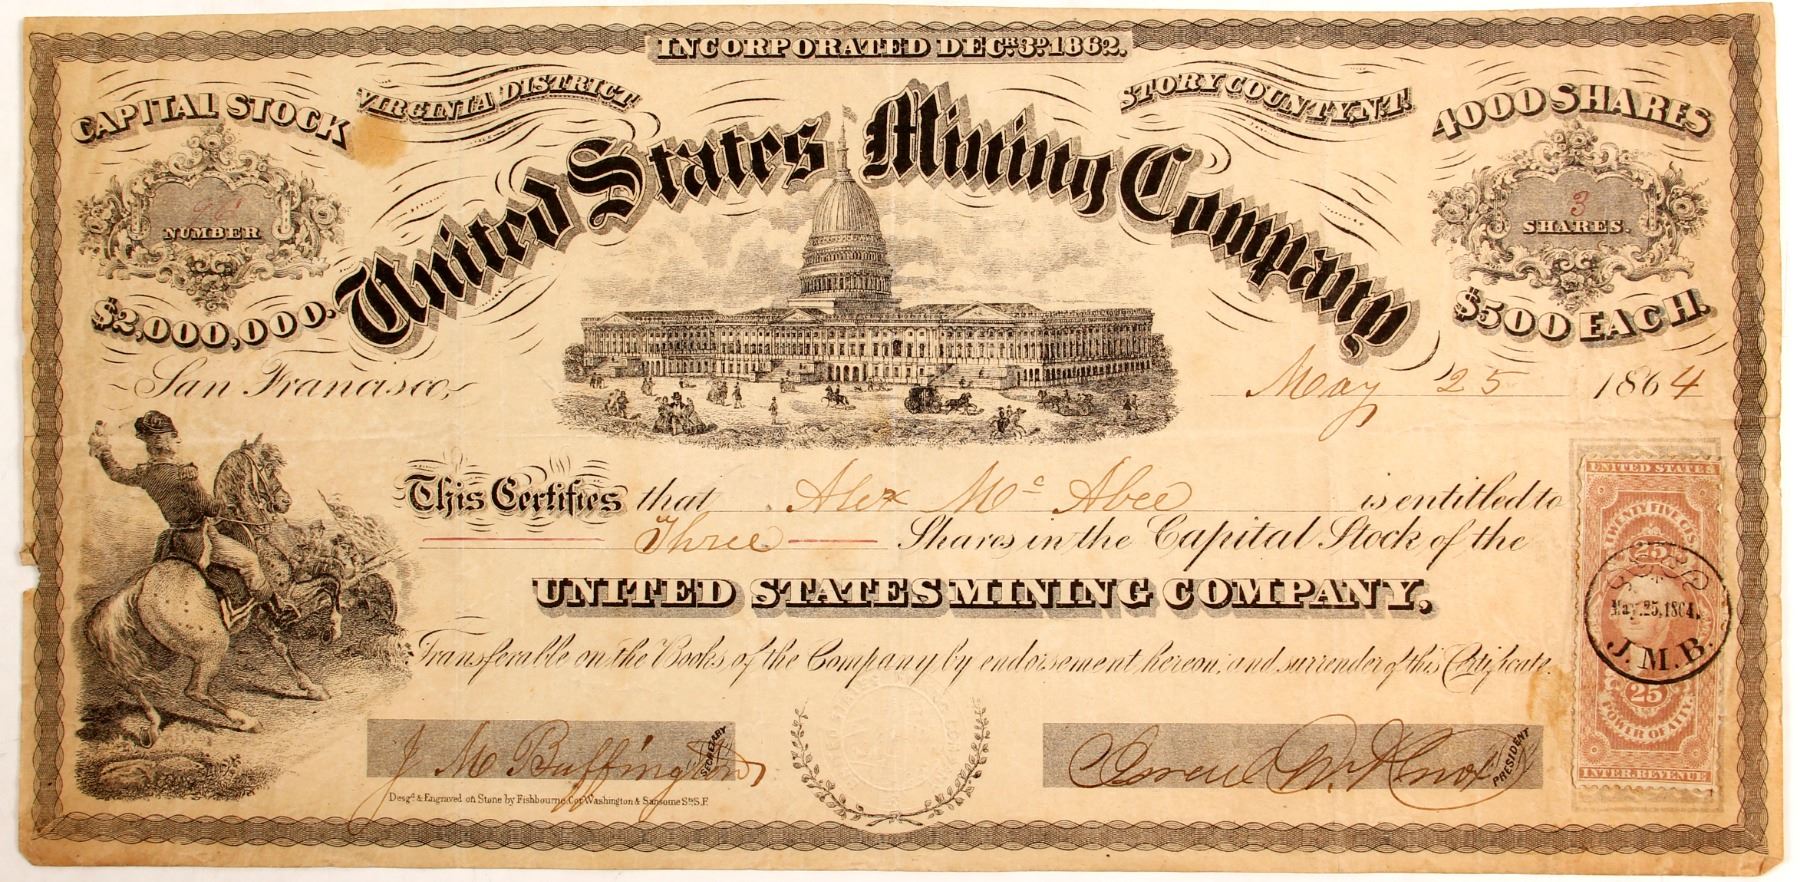 INCORPORATED DECR. 3D. 1862.
VIRGINIA DISTRICT
STORY COUNTY N.T.
CAPITAL STOCK
4000 SHARES
United States Mining Company
NUMBER
3
SHARES.
$2,000,000.
$500 EACH.
San Francisco, May 25 1864
This Certifies that Alex Mc Abee is entitled to
Three Shares in the Capital Stock of the
UNITED STATES MINING COMPANY,
Transferable on the Books of the Company by endorsement hereon, and surrender of this Certificate.
UNITED STATES
TWENTY FIVE CTS.
25
May.25,1864.
J. M. B.
25
POWER OF ATTY.
INTER. REVENUE
J M Buffington
SECRETARY
Knox
PRESIDENT
Desgd. & Engraved on Stone by Fishbourne Cor Washington & Sansome Sts S.F.